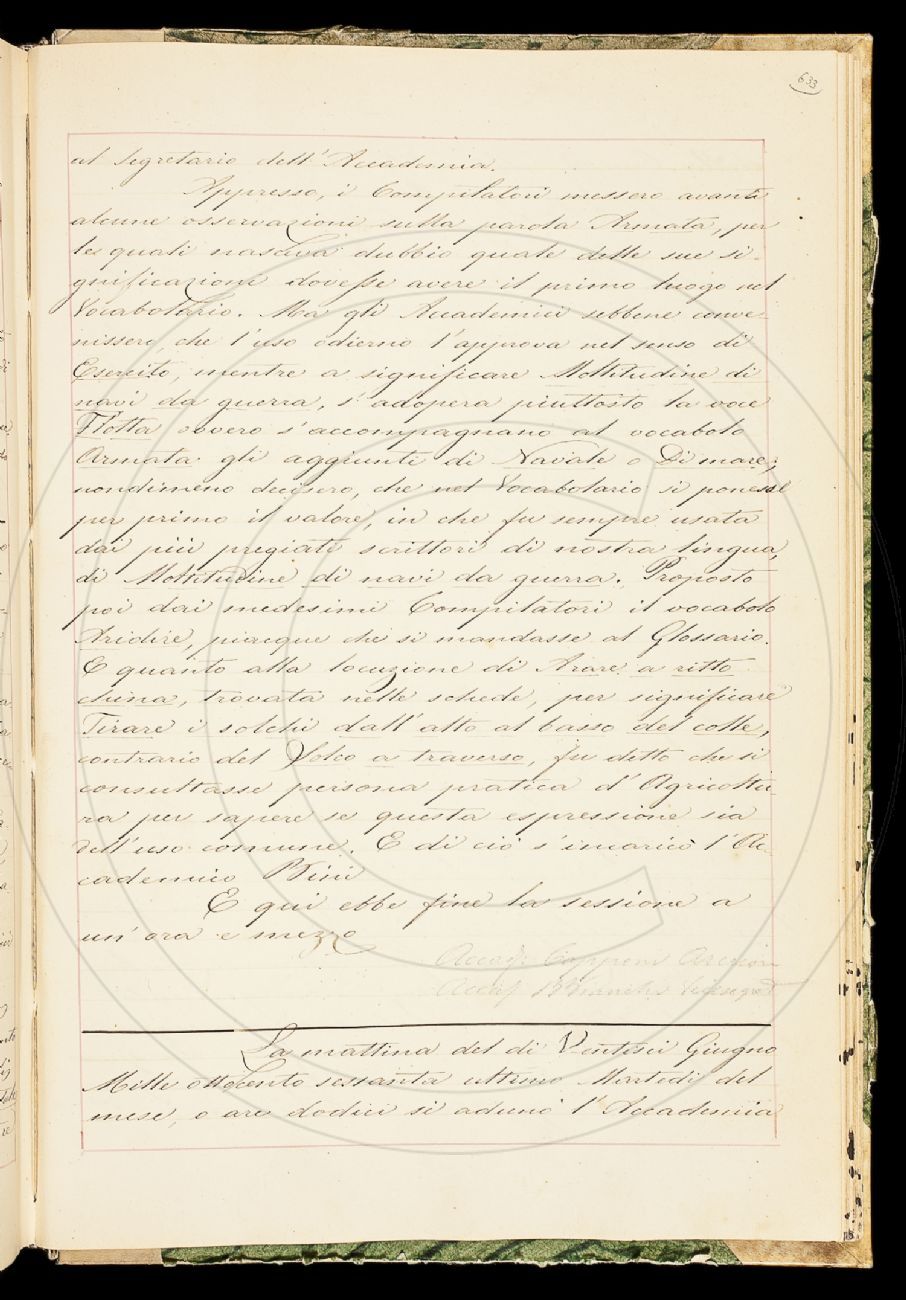 633
al Segretario dell'Accademia.
Appresso, i Compilatori messero avanti
alcune osservazioni sulla parola Armata, per
le quali nasceva dubbio quale delle sue si-
gnificazioni dovesse avere il primo luogo nel
Vocabolario. Ma gli Accademici sebbene conve-
nissero, che l'uso odierno l'approva nel senso di
Esercito, mentre a significare Moltitudine di
navi da guerra, s'adopera piuttosto la voce
Flotta ovvero s'accompagnano al vocabolo
Armata gli aggiunti di Navale o Di mare;
nondimeno decisero, che nel Vocabolario si ponesse
per primo il valore, in che fu sempre usata
dai più pregiati scrittori di nostra lingua,
di Moltitudine di navi da guerra. Proposto
poi dai medesimi Compilatori il vocabolo
Aridire, piacque che si mandasse al Glossario.
E quanto alla locuzione di Arare a ritto
china, trovata nelle schede, per significare
Tirare i solchi dall'alto al basso del colle,
contrario del Solco a traverso, fu detto che si
consultasse persona pratica d'Agricoltu-
ra per sapere se questa espressione sia
dell'uso comune. E di ciò s'incaricò l'Ac-
cademico Bini
E qui ebbe fine la sessione a
un'ora e mezzo
Capponi
Bianchi
La mattina del dì Ventisei Giugno
Mille ottocento sessanta ultimo Martedì del
mese, a ore dodici si adunò l'Accademia